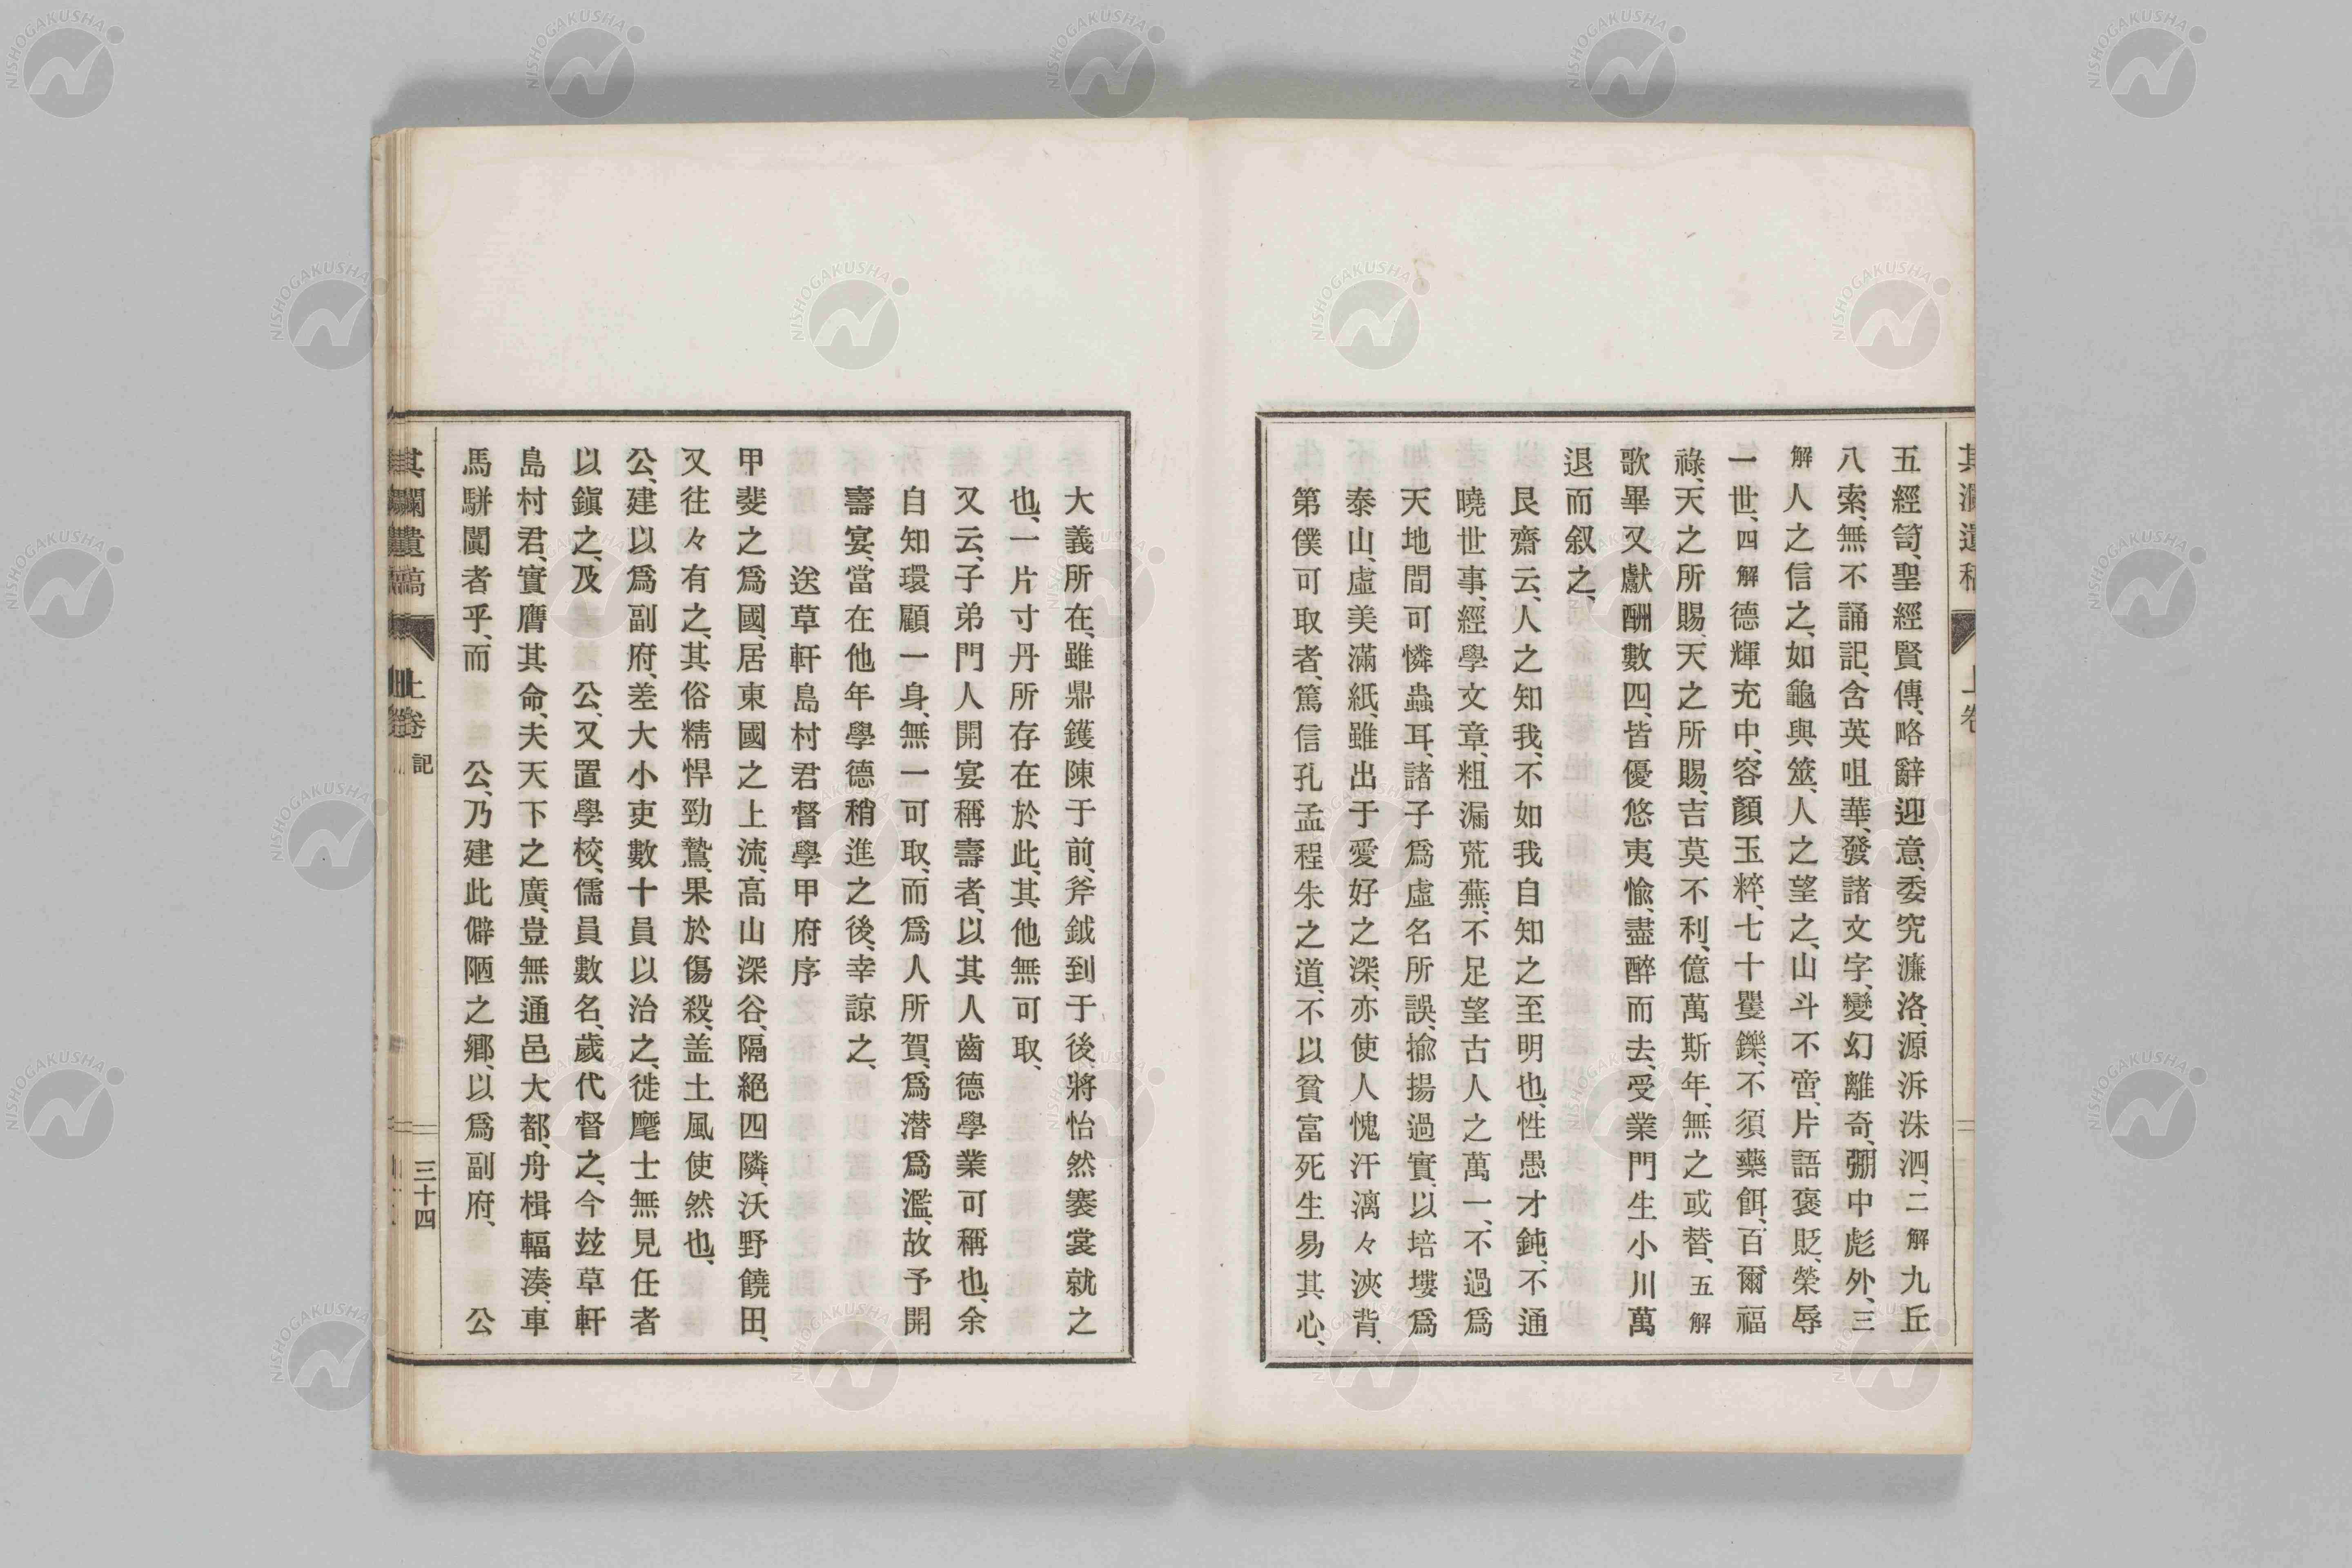 五經笥、聖經賢傳、略辭迎意、委究濂洛、源泝洙泗、二解九丘
八索、無不誦記、含英咀華、發諸文字、變幻離奇、弸中彪外、三
解人之信之、如龜與筮、人之望之、山斗不啻、片語褒貶、榮辱
一世、四解德輝充中、容顏玉粹、七十矍鑠、不須藥餌、百爾福
祿、天之所賜、天之所賜、吉莫不利、億萬斯年、無之或替、五解
歌畢又獻酬數四、皆優悠夷愉、盡醉而去、受業門生小川萬
退而叙之、
艮齋云、人之知我、不如我自知之至明也、性愚才鈍、不通
曉世事、經學文章、粗漏荒蕪、不足望古人之萬一、不過爲
天地間可憐蟲耳、諸子爲虛名所誤、揄揚過實、以培塿爲
泰山、虛美滿紙、雖出于愛好之深、亦使人愧汗漓々浹背、
第僕可取者、篤信孔孟程朱之道、不以貧富死生易其心、
大義所在、雖鼎鑊陳于前、斧鉞到于後、將怡然褰裳就之
也、一片寸丹所存在於此、其他無可取、
又云、子弟門人開宴稱壽者、以其人齒德學業可稱也、余
自知環顧一身、無一可取、而爲人所賀、爲潜爲濫、故予開
壽宴、當在他年學德稍進之後、幸諒之、
送草軒島村君督學甲府序
甲斐之爲國、居東國之上流、高山深谷、隔絕四隣、沃野饒田、
又往々有之、其俗精悍勁鷙、果於傷殺、盖土風使然也、
公、建以爲副府、差大小吏數十員以治之、徙麾士無見任者
以鎭之、及　公、又置學校、儒員數名、歲代督之、今玆草軒
島村君、實膺其命、夫天下之廣、豈無通邑大都、舟楫輻湊、車
馬駢闐者乎、而　公、乃建此僻陋之鄕、以爲副府、　公
其瀾遺稿　上卷　記　三十四